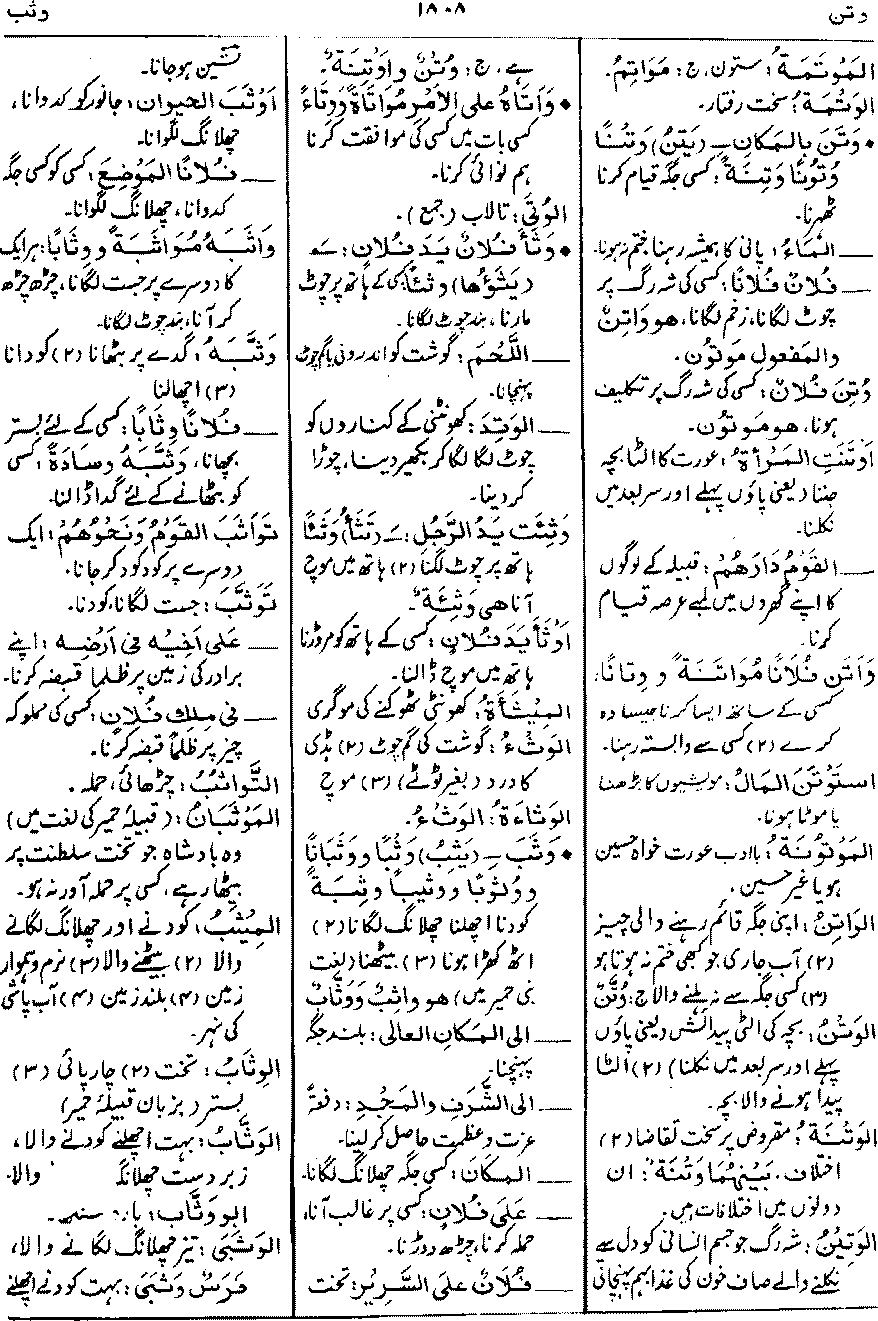 وتن
۱۸۰۸
وثب
المَوْتَمَة: ستون، ج: مَوَاتِمُ.
الوَتْمَةُ: سخت رفتار.
• وَتَنَ بِالمَكَانِ ـِ (يَتِنُ) وَتْنًا
وُتُونًا وَتِنَةً: کسی جگہ قیام کرنا
ٹھہرنا.
ــــ المَاءُ: پانی کا ہمیشہ رہنا، ختم نہ ہونا.
ــــ فُلانٌ فُلَانًا: کسی کی شہ رگ پر
چوٹ لگانا، زخم لگانا، هو وَاتِنٌ
والمفعول مَوْتُون.
وُتِنَ فُلَانٌ: کسی کی شہ رگ پر تکلیف
ہونا، هو مَوْتُون.
اَوْتَنَتِ المَرْأَةُ: عورت کا الٹا بچہ
جننا (یعنی پاؤں پہلے اور سر بعد میں
نکلنا.
ــــ القَوْمُ دَارَهُمْ: قبیلہ کے لوگوں
کا اپنے گھروں میں لمبے عرصہ قیام
کرنا.
وَاتَنَ فُلَانًا مُوَاتَنَةً و وِتَانًا:
کسی کے ساتھ ایسا کرنا جیسا وہ
کرے (۲) کسی سے وابستہ رہنا.
استَوْتَنَ المَالُ: مویشیوں کا بڑھنا
یا موٹا ہونا.
المَوْتُونَةُ: باادب عورت خواہ حسین
ہو یا غیر حسین.
الوَاتِنُ: اپنی جگہ قائم رہنے والی چیز
(۲) آب جاری جو کبھی ختم نہ ہوتا ہو
(۳) کسی جگہ سے نہ ہلنے والا ج: وُتَّنٌ
الوَتْنُ: بچہ کی الٹی پیدائش (یعنی پاؤں
پہلے اور سر بعد میں نکلنا) (۲) الٹا
پیدا ہونے والا بچہ.
الوَتْنَةُ: مقروض پر سخت تقاضا (۲)
اختلاف. بَيْنَهُمَا وَتْنَةٌ: ان
دونوں میں اختلافات ہیں.
الوَتِيْنُ: شہ رگ جو جسم انسانی کو دل سے
نکلنے والے صاف خون کی غذا بہم پہنچاتی
ہے، ج: وُتُنٌ و اَوْتِنَةٌ.
• وَاتَاهُ عَلَى الاَمْرِ مُوَاتَاةً وَوِتَاءً
کسی بات میں کسی کی موافقت کرنا
ہم نوائی کرنا.
الوُتَى: تالاب (جمع).
• وَثَأَ فُلَانٌ يَدَ فُلَانٍ: ـَـ
(يَثَؤُهَا) وَثْئًا: کسی کے ہاتھ پر چوٹ
مارنا، بند چوٹ لگانا.
ــــ اللَّحْمَ: گوشت کو اندرونی یا گم چوٹ
پہنچانا.
ــــ الوَتِدَ: کھونٹی کے کناروں کو
چوٹ لگا لگا کر بکھیر دینا، چوڑا
کر دینا.
وَثِئَت يَدُ الرَّجُلِ: ـَـ (تَثَأُ) وَثَئًا
ہاتھ پر چوٹ لگنا (۲) ہاتھ میں موچ
آنا هی وَثِئَةٌ.
اَوْثَأَ يَدَ فُلَانٍ: کسی کے ہاتھ کو مروڑنا
ہاتھ میں موچ ڈالنا.
المِيْثَأَةُ: کھونٹی ٹھوکنے کی موگری
الوَثْءُ: گوشت کی گم چوٹ (۲) ہڈی
کا درد (بغیر ٹوٹے) (۳) موچ
الوَثَاءَةُ: الوَثْءُ.
• وَثَبَ ـِ (يَثِبُ) وَثْبًا و وَثَبَانًا
و وُثُوبًا و وَثِيبًا وثِبَةً
کودنا اچھلنا چھلانگ لگانا (۲)
اٹھ کھڑا ہونا (۳) بیٹھنا (لغت
بنی حمیر میں) هو واثِبٌ وَوَثَّابٌ
ــــ الى المَكَانِ العالى: بلند جگہ
پہنچنا.
ــــ الى الشَّرَفِ والمَجْدِ: دفعةً
عزت و عظمت حاصل کر لینا.
ــــ المكَانَ: کسی جگہ چھلانگ لگانا.
ــــ عَلَى فُلَانٍ: کسی پر غالب آنا،
حملہ کرنا، چڑھ دوڑنا.
ــــ فُلَانٌ عَلَى السَّرِيْرِ: تخت
نشین ہو جانا.
اَوْثَبَ الحيوان: جانور کو کدوانا،
چھلانگ لگوانا.
ــــ فُلَانًا المَوْضِعَ: کسی کو کسی جگہ
کدوانا، چھلانگ لگوانا.
وَاثَبَهُ مُوَاثَبَةً و وِثَابًا: ہر ایک
کا دوسرے پر جست لگانا، چڑھ چڑھ
کر آنا، بند چوٹ لگانا.
وَثَّبَهُ: گدے پر بٹھانا (۲) کودانا
(۳) اچھالنا
ــــ فُلَانًا وِثَابًا: کسی کے لئے بستر
بچھانا، وَثَّبَهُ وِسَادَةً: کسی
کو بٹھانے کے لئے گدا ڈالنا.
تَوَاثَبَ القَوْمُ وَنَحوُهُمْ: ایک
دوسرے پر کود کود کر جانا.
تَوَثَّبَ: جست لگانا، کودنا.
ــــ عَلَى اَخِيْهِ فى اَرْضِهِ: اپنے
برادر کی زمین پر ظلماً قبضہ کرنا.
ــــ فى مِلْكِ فُلَانٍ: کسی کی مملوکہ
چیز پر ظلماً قبضہ کرنا.
التَّوَاثُبُ: چڑھائی، حملہ.
المَوْثَبَانُ: (قبیلۂ حمیر کی لغت میں)
وہ بادشاہ جو تخت سلطنت پر
بیٹھا رہے، کسی پر حملہ آور نہ ہو.
المِيْثَبُ: کودنے اور چھلانگ لگانے
والا (۲) بیٹھنے والا (۳) نرم و ہموار
زمین (۴) بلند زمین (۴) آب پاشی
کی نہر.
الوِثَابُ: تخت (۲) چارپائی (۳)
بستر (بزبان قبیلۂ حمیر)
الوَثَّابُ: بہت اچھلنے کودنے والا،
زبردست چھلانگ والا.
ابو وَثَّاب:
الوَثَبَى: تیز چھلانگ لگانے والا،
فَرَسٌ وَثَبَى: بہت کودنے اچھلنے